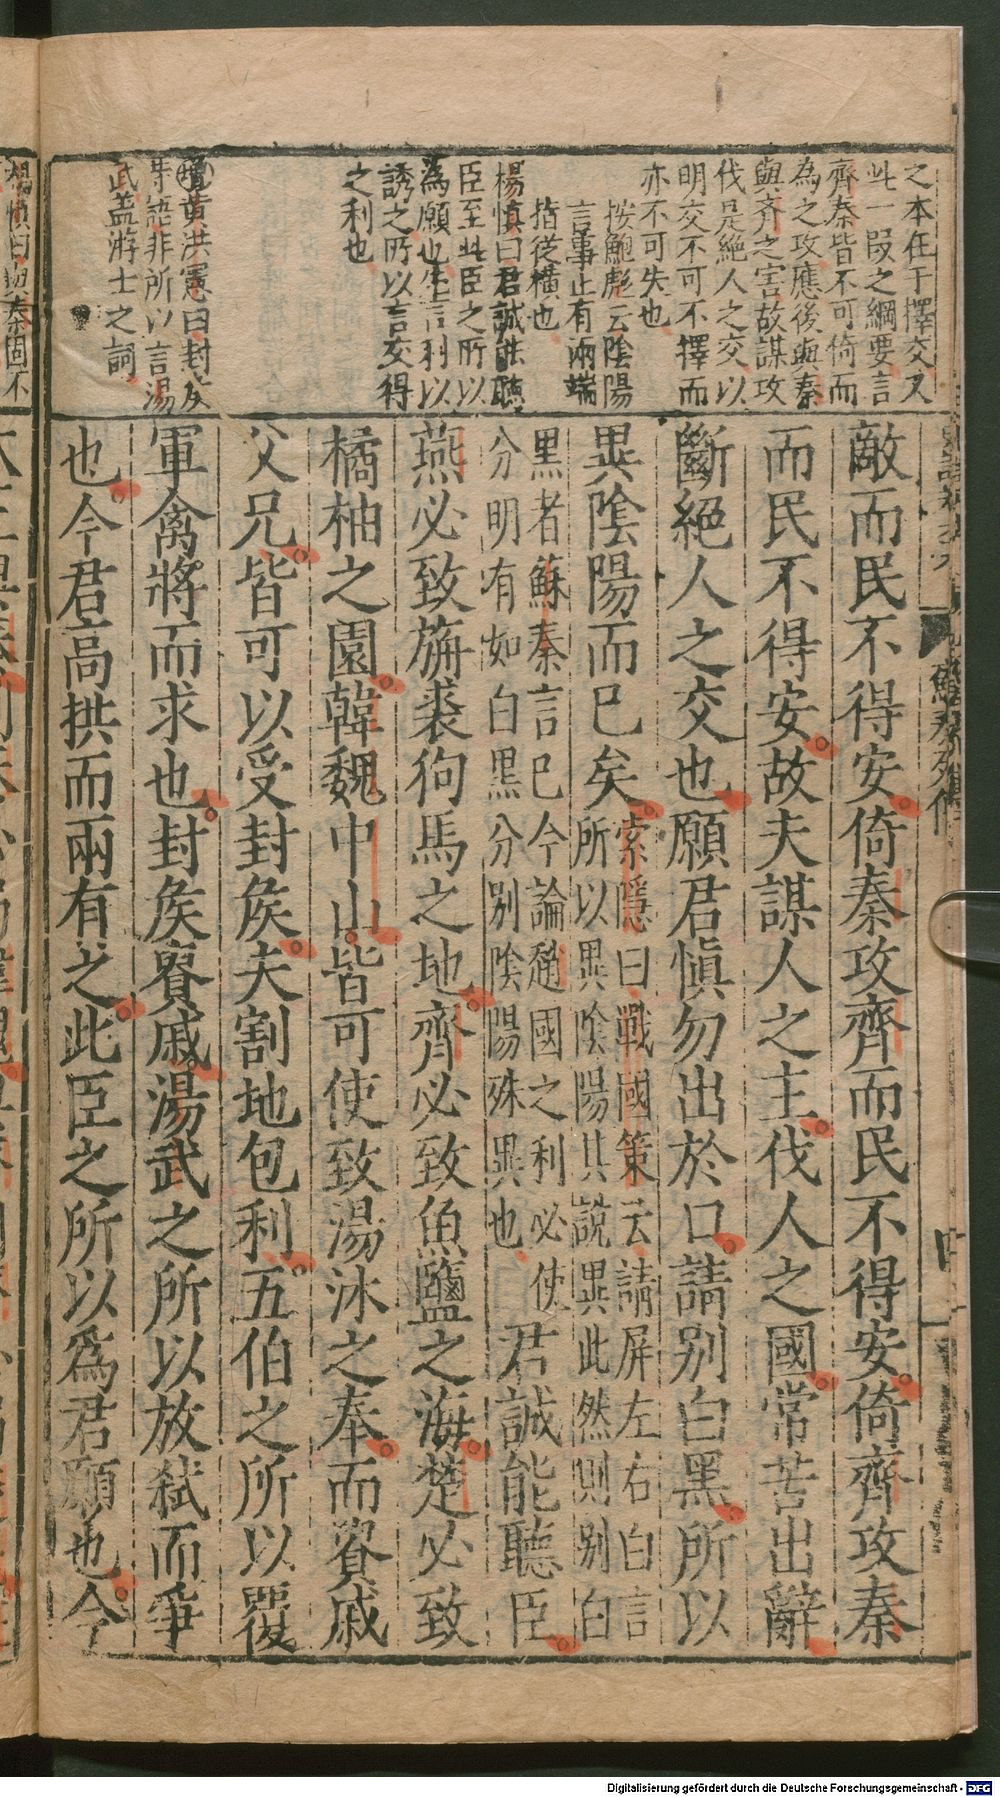 之本在于擇交又
此一段之綱要言
齊秦皆不可倚而
為之攻應後與秦
與齊之害故謀攻
伐是絕人之交以
明交不可不擇而
亦不可失也
按鮑彪云陰陽
言事止有兩端
指從橫也
楊慎曰君誠能聽
臣至此臣之所以
為願也生言利以
誘之所以言交得
之利也
黃洪憲曰封侯
等語非所以言湯
武盖游士之詞
敵而民不得安倚秦攻齊而民不得安倚齊攻秦
而民不得安故夫謀人之主伐人之國常苦出辭
斷絕人之交也願君慎勿出於口請別白黑所以
異陰陽而已矣索隱曰戰國策云請屏左右白言
所以異陰陽其說異此然則別白
黑者蘇秦言已今論趙國之利必使
分明有如白黑分別陰陽殊異也君誠能聽臣
燕必致旃裘狗馬之地齊必致魚鹽之海楚必致
橘柚之園韓魏中山皆可使致湯沐之奉而貴戚
父兄皆可以受封侯夫割地包利五伯之所以覆
軍禽將而求也封侯貴戚湯武之所以放弒而爭
也今君高拱而兩有之此臣之所以為君願也今
蘇秦列傳
楊慎曰與秦固不
Digitalisierung gefördert durch die Deutsche Forschungsgemeinschaft - DFG